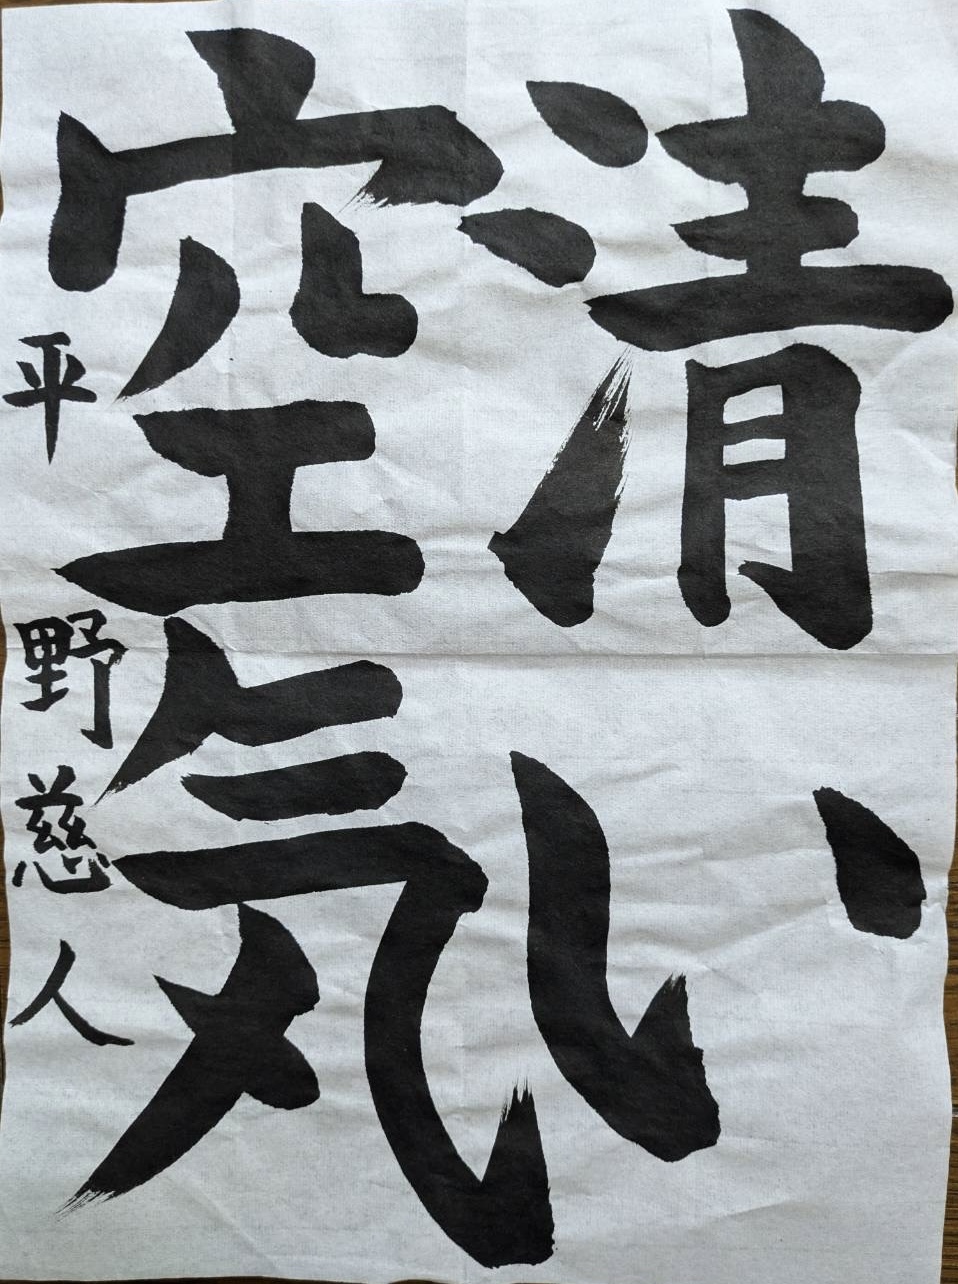 清い
空気
平野慈人